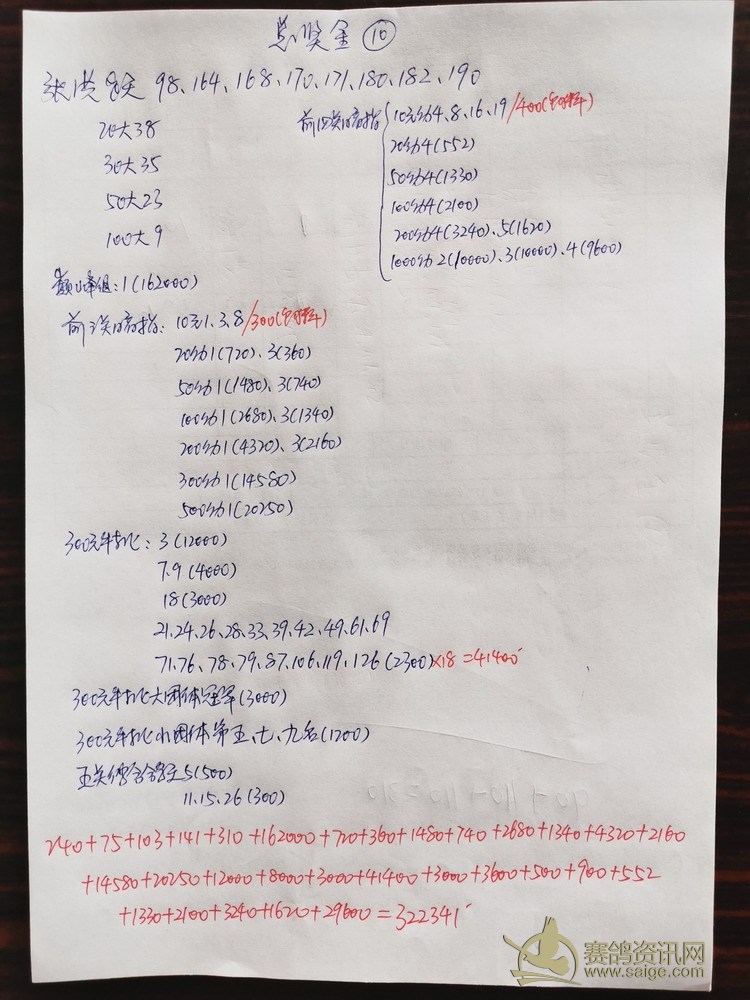 总奖金 ⑩
张洪 98、164、168、170、171、180、182、190
20大38
30大35
50大23
100大9
前四关精指 10元组4、8、16、19/400
20组4(552)
50组4(1330)
100组4(2100)
200组4(3240)、5(1620)
1000组2(10000)、3(10000)、4(9600)
巅峰组:1(162000)
前三关精指: 10元1、3、8/300
20组1(720)、3(360)
50组1(1480)、3(740)
100组1(2680)、3(1340)
200组1(4320)、3(2160)
300组1(14580)
500组1(20250)
300元单挑: 3(12000)
7、9(4000)
18(3000)
21、24、26、28、33、39、42、49、61、69
71、76、78、79、87、106、119、126(2300)×18=41400
300元单挑大团体冠军(3000)
300元单挑小团体第五、七、九名(1200)
五关综合鸽王5(500)
11、15、26(300)
240+75+103+141+310+162000+720+360+1480+740+2680+1340+4320+2160
+14580+20250+12000+8000+3000+41400+3000+3600+500+900+552
+1330+2100+3240+1620+29600=322341
赛鸽资讯网
www.saige.com